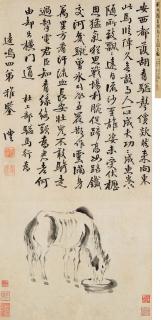 安西都護胡青驄聲價欻然來向東
此馬臨陣久無敵與人一心成大功功成惠養
隨所致飄飄遠自流沙至雄姿未受伏櫪
恩猛氣猶思戰場利腕促蹄高如踣鐵
交河幾蹴曾冰裂五花散作雲滿身
萬里方看汗流血長安壯兒不敢騎走
過掣電傾城知青絲絡頭為君老何
由却出橫門道 杜工部驄馬行為
達鳴四弟雅鑒